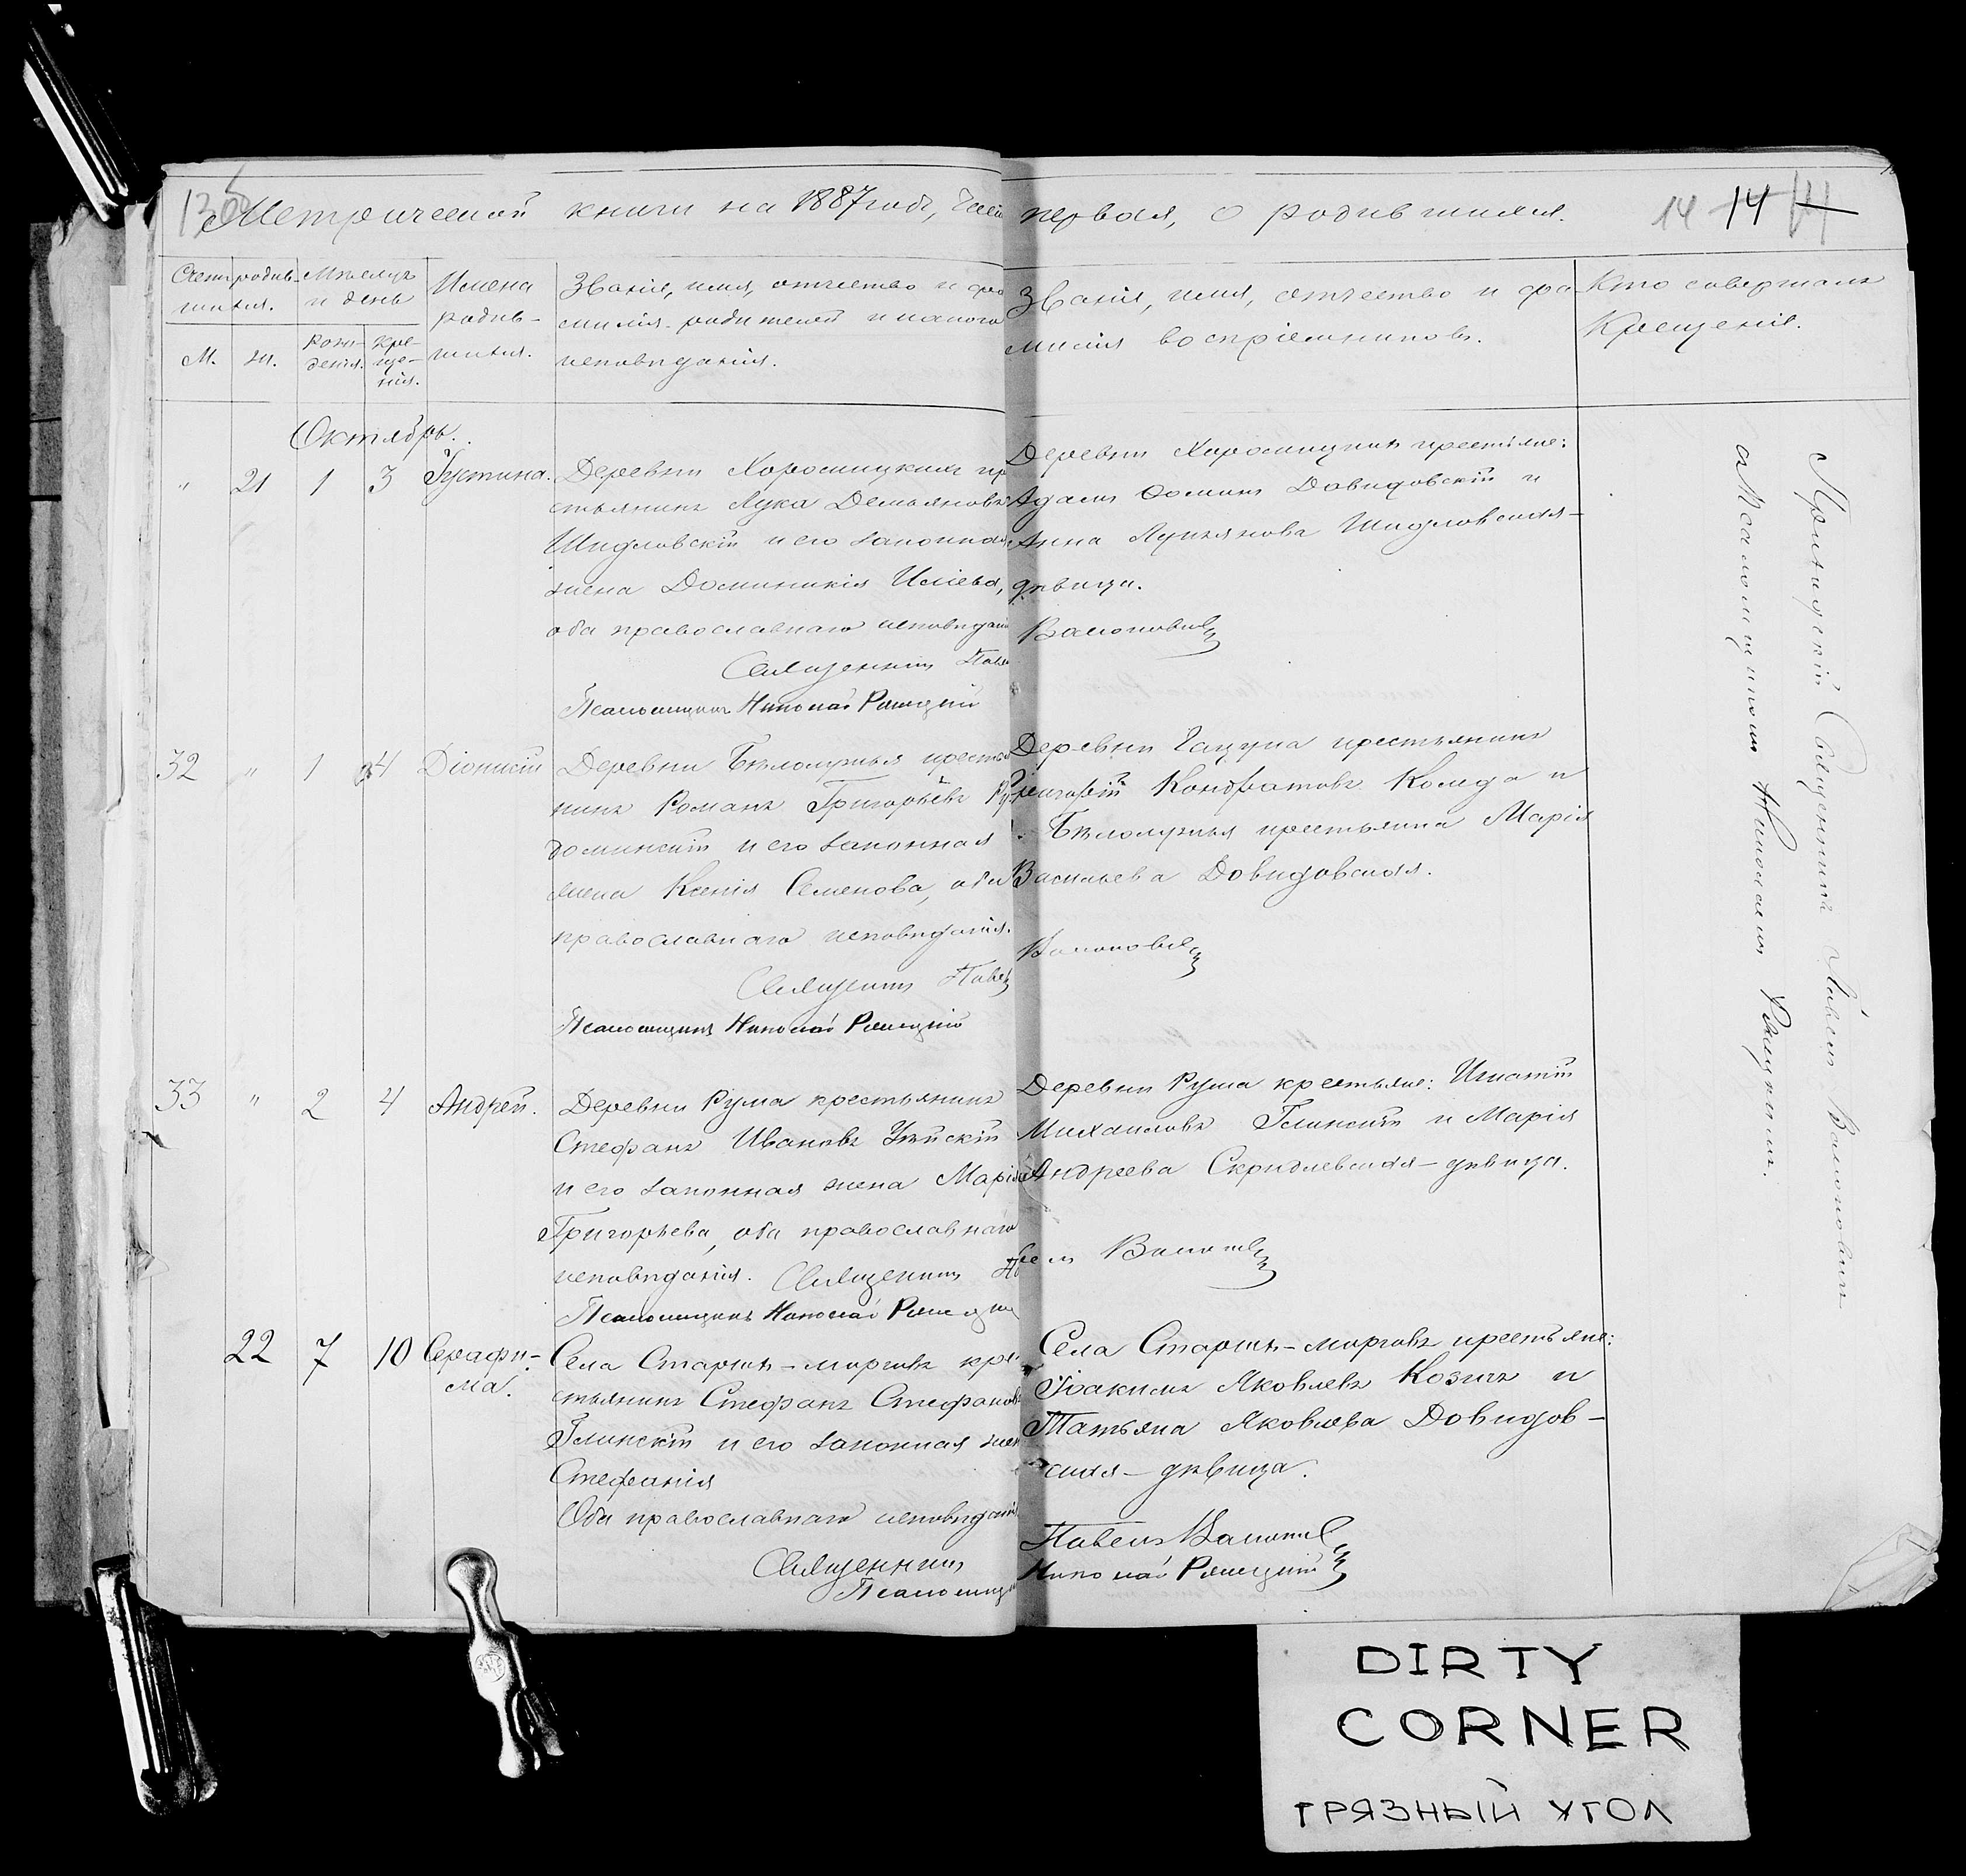 Метрической книги на 1887 годъ, часть первая, о родившихся.
14 14
Счетъ родив-
шихся.
Мѣсяцъ
и день
Имена
родив-
шихся.
Званіе, имя, отчество и фа
милія родителей и какого
исповѣданія.
Званіе, имя, отчество и фа-
милія воспріемниковъ.
Кто совершалъ
крещеніе.
М.
ж.
рож-
денія.
кре-
ще-
нія.
Октябрь.
" 21 1 3 Іустина.
Деревни Хоромицкихъ кр
стьянинъ Лука Демьяновъ
Шидловскій и его законная
жена Доминикія Иліева,
оба православнаго исповѣдані
Священникъ Паве
Псаломщикъ Николай
Деревни Хоромицкихъ крестьяне:
Адамъ Ѳоминъ Довидовскій и
Анна Лукьянова Шидловская-
дѣвица.
32 " 1 4 Діонисій
Деревни Бѣлолужья крестья
нинъ Романъ Григорьевъ Ру
доминскій и его законная
жена Ксенія Семенова, оба
православнаго исповѣданія.
Священникъ Павел
Псаломщикъ Николай
Деревни Гацука крестьянинъ
Григорій Кондратовъ Коляда и
Бѣлолужья крестьянка Марія
Васильева Довидовская.
33 " 2 4 Андрей.
Деревни Рума крестьянинъ
Стефанъ Ивановъ
и его законная жена Марія
Григорьева, оба православнаго
исповѣданія. Священникъ Па
Псаломщикъ Николай
Деревни Рума крестьяне: Игнатій
Михаиловъ Глинскій и Марія
Андреева Скридлевская-дѣвица.
вел
22 7 10 Серафи-
ма.
Села Старицъ-морговъ кре
стьянинъ Стефанъ Стефановъ
Глинскій и его законная жен
Стефанія
Оба православнаго исповѣданія
Священникъ
Псаломщи
Села Старицъ-морговъ крестьяне:
Іоакимъ Яковлевъ Козичъ и
Татьяна Яковлева Довидов-
ская-дѣвица.
Павелъ
Николай
Приходскій Священникъ Павелъ
съ Псаломщикомъ Николаемъ
DIRTY
CORNER
ГРЯЗНЫЙ УГОЛ